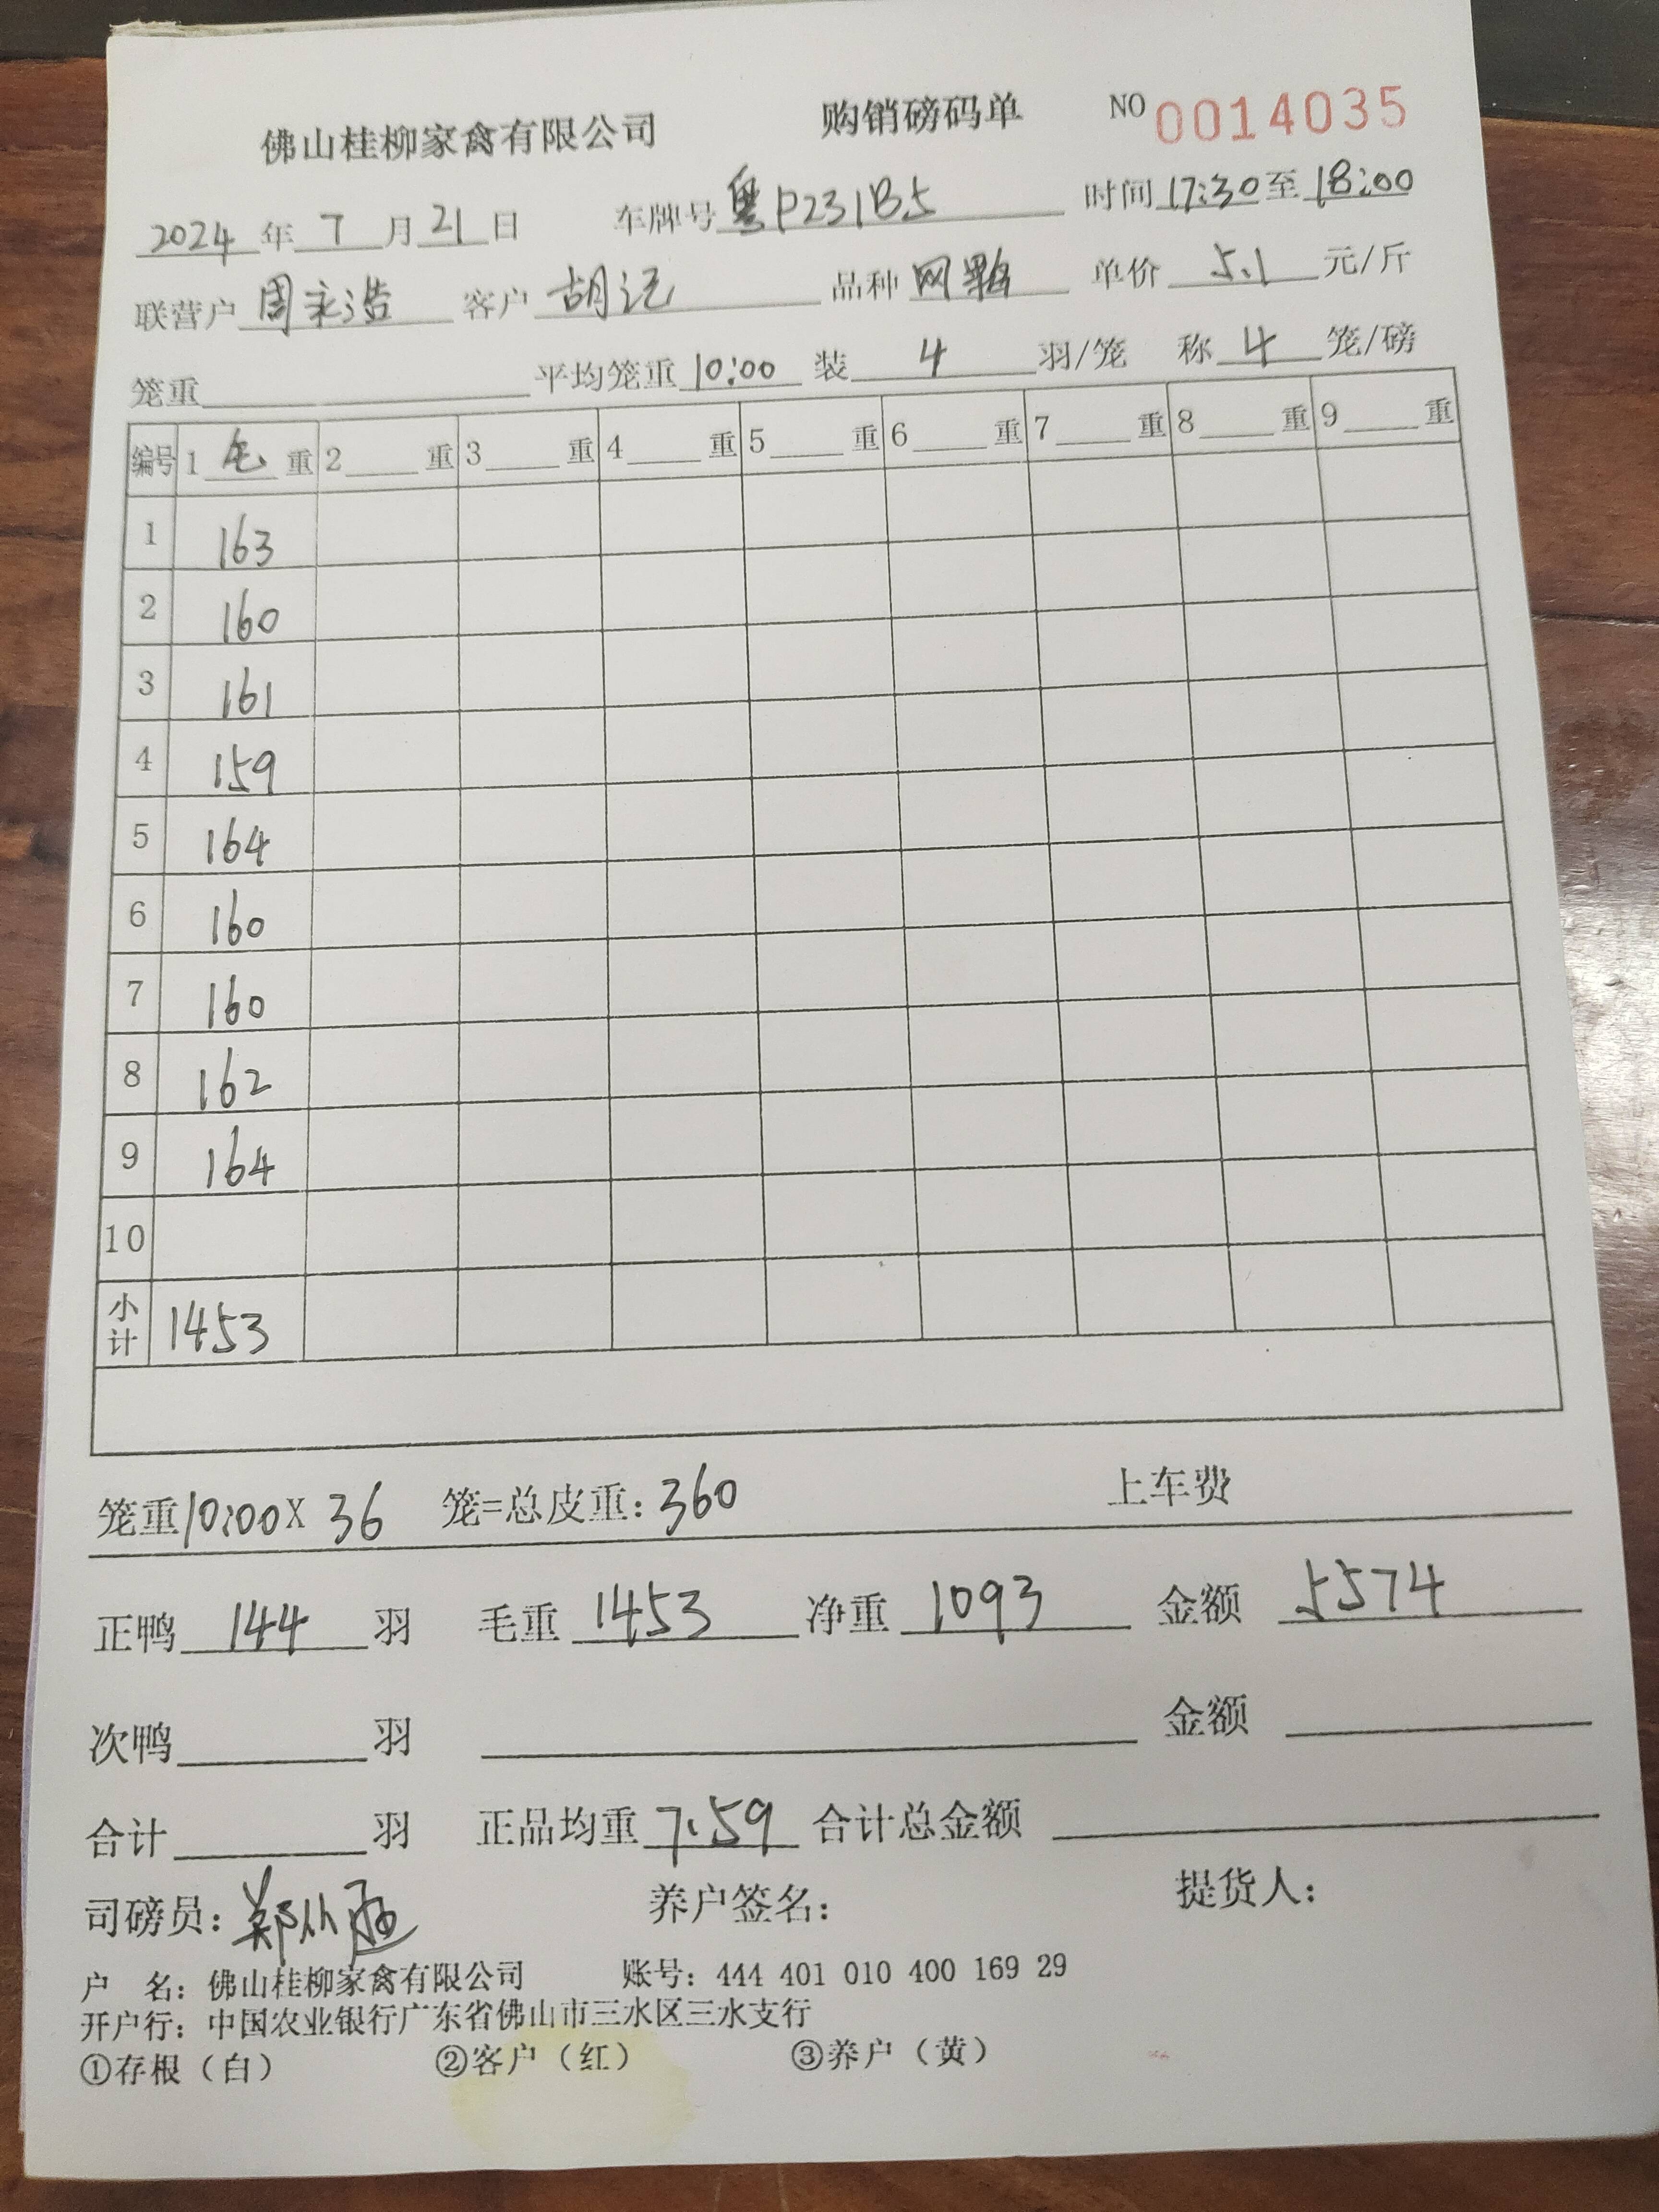 佛山桂柳家禽有限公司 购销磅码单 NO 0014035
2024年7月21日 车牌号 粤P231B5 时间 17:30至18:00
联营户 周永浩 客户 胡记 品种 网鸭 单价 5.1 元/斤
笼重 平均笼重 10:00 装 4 羽/笼 称 4 笼/磅
编号 1 毛 重 2 重 3 重 4 重 5 重 6 重 7 重 8 重 9 重
1 163
2 160
3 161
4 159
5 164
6 160
7 160
8 162
9 164
10
小计 1453
笼重10:00X 36 笼=总皮重:360 上车费
正鸭 144 羽 毛重 1453 净重 1093 金额 5574
次鸭 羽 金额
合计 羽 正品均重 7.59 合计总金额
司磅员: 养户签名: 提货人:
户 名: 佛山桂柳家禽有限公司 账号: 444 401 010 400 169 29
开户行: 中国农业银行广东省佛山市三水区三水支行
①存根（白） ②客户（红） ③养户（黄）